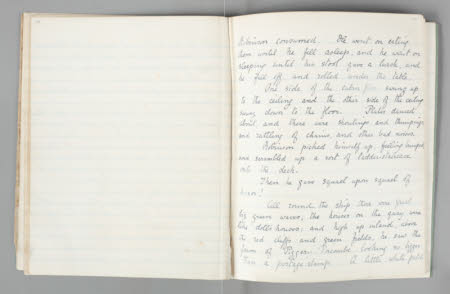 Robinson consumed. He went on eating
them until he fell asleep, and he went on
sleeping until his stool gave a lurch, and
he fell off and rolled under the table.
One side of the cabin floor swung up
to the ceiling and the other side of the ceiling
swung down to the floor. Plates danced
about, and there were shoutings and thumpings
and rattling of chains, and other bad noises.
Robinson picked himself up, feeling bumped,
and scrambled up a sort of ladder-staircase
onto the deck.
Then he gave squeal upon squeal of
horror!
All round the ship there were great
big green waves; the houses on the quay were
like dolls houses; and high up inland, above
the red cliffs and green fields, he saw the
farm of Piggery Porcombe looking no bigger
than a postage stamp. A little white patch